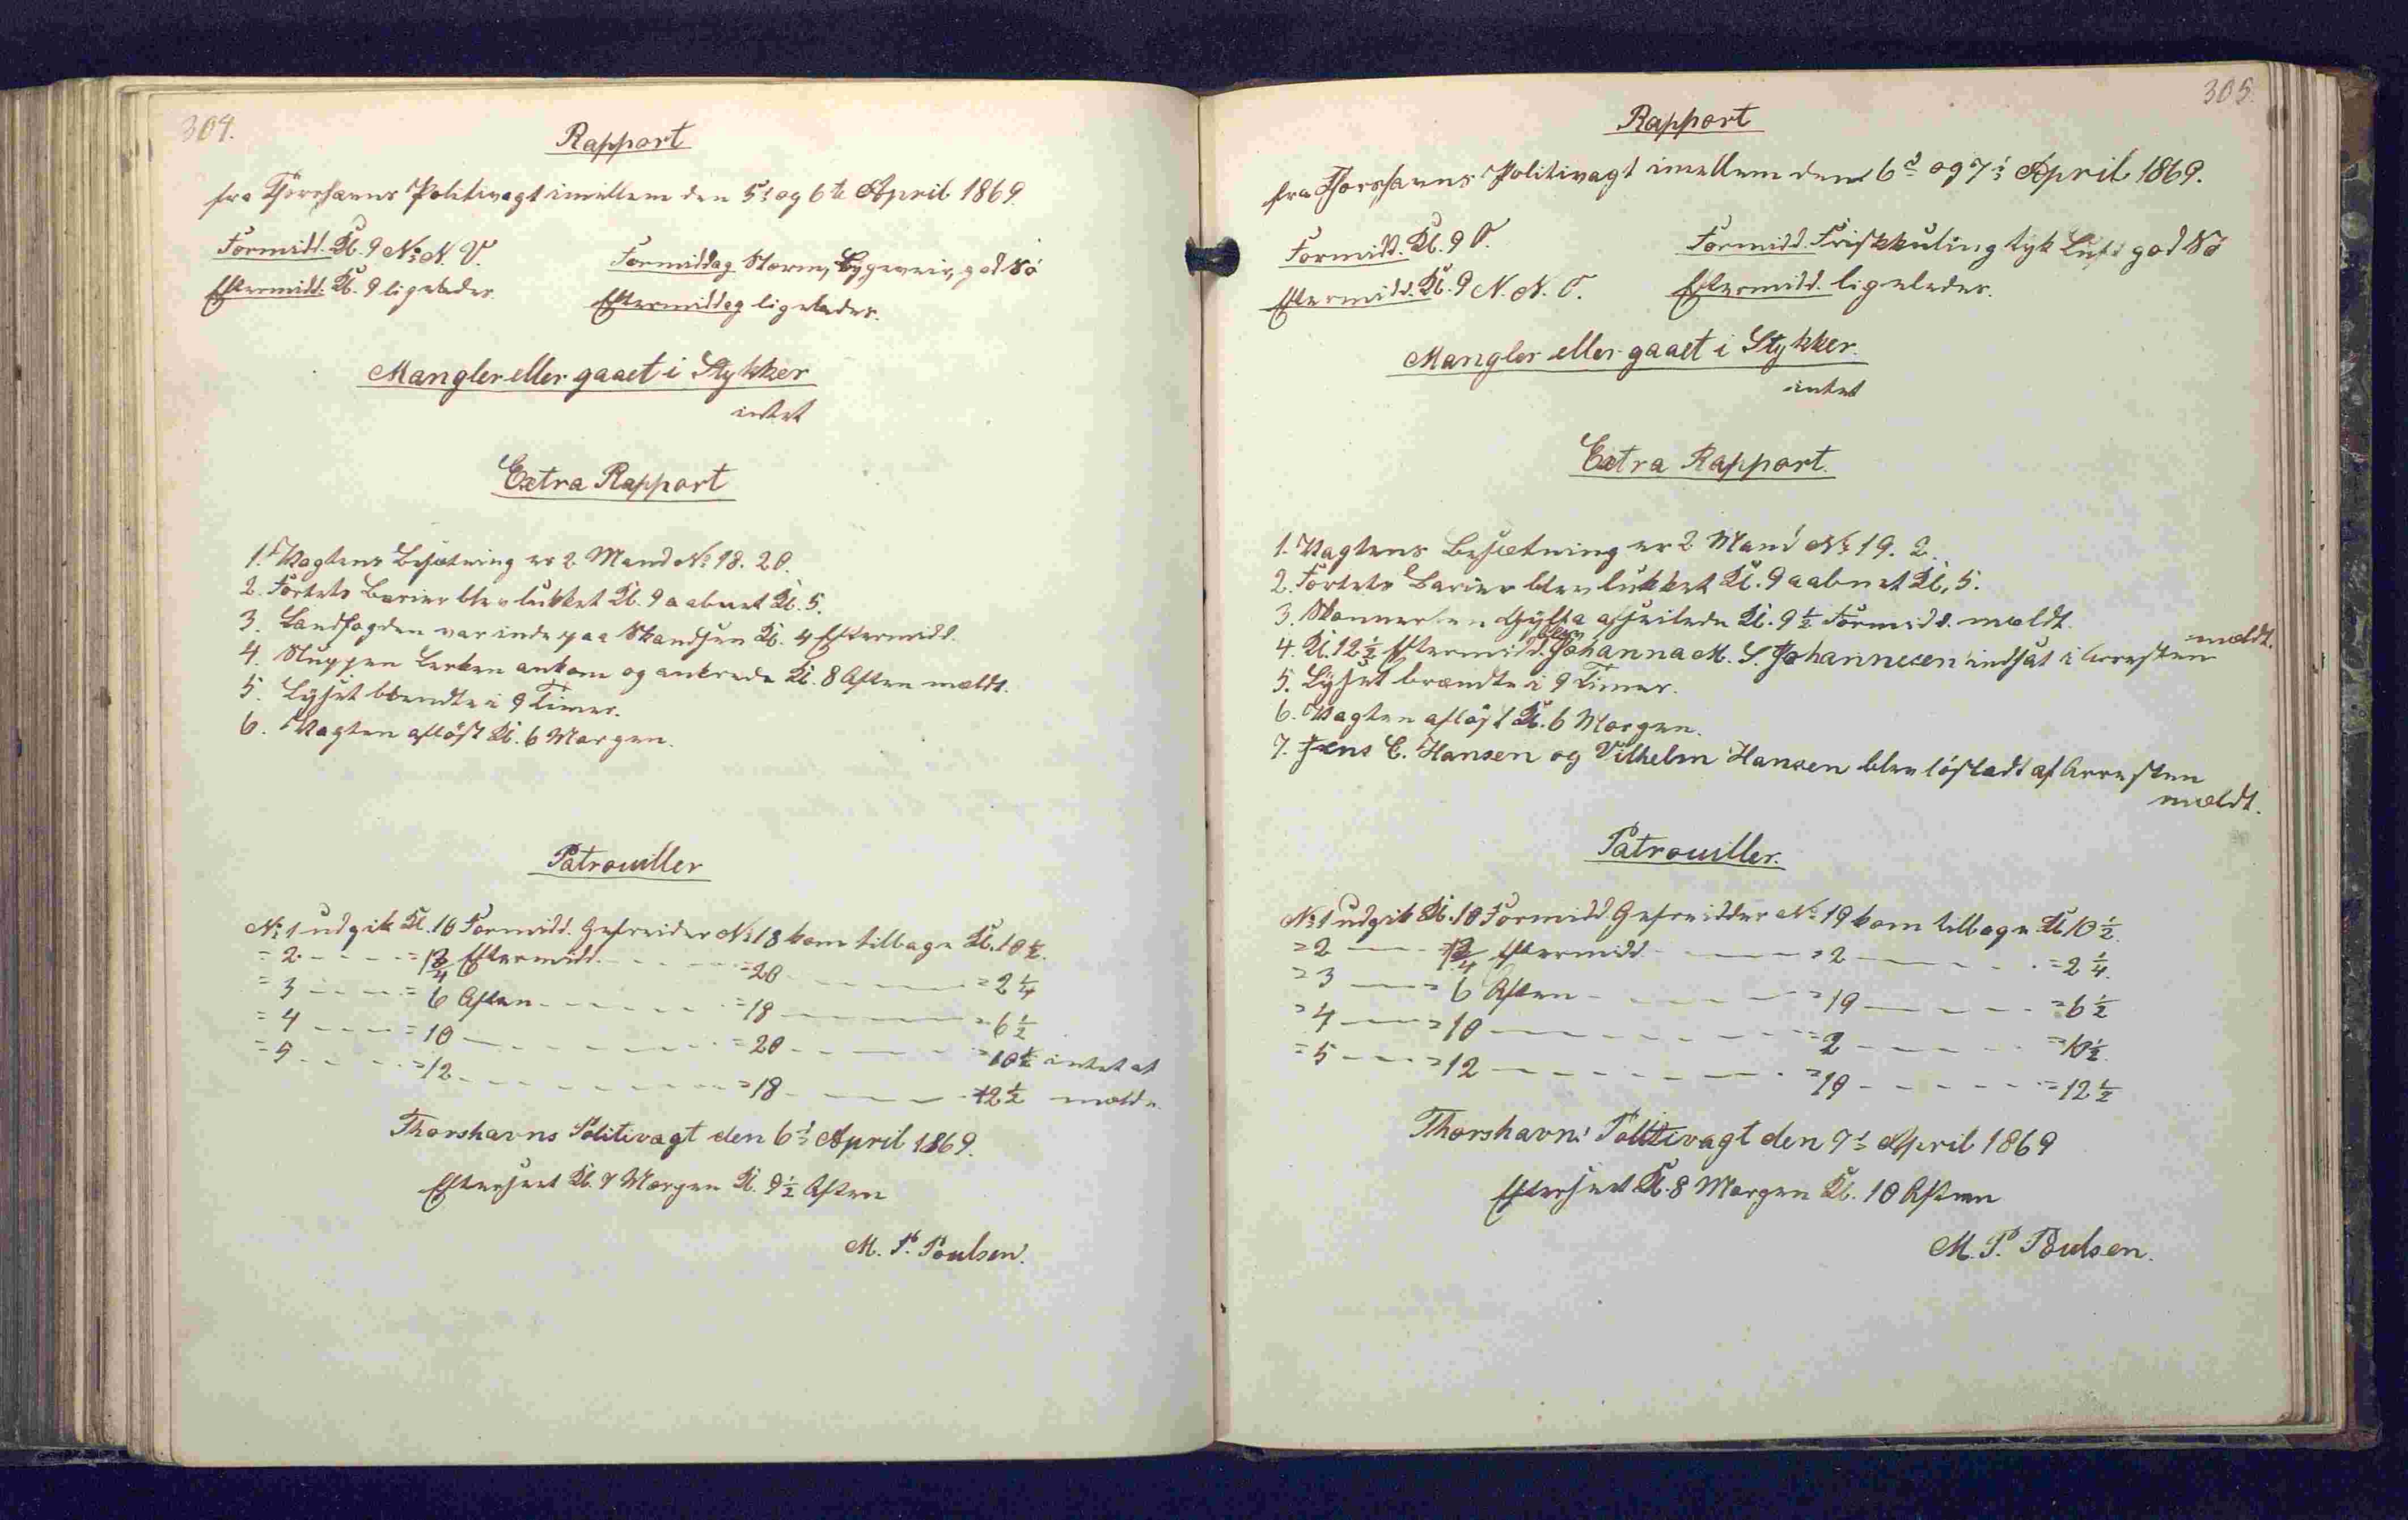 304.
Rapport
fra Thorshavns Politivagt imellem den 5t og 6te April 1869.
Formidd. Kl. 9 N. N. V.
Eftermidd. Kl. 9 ligeledes.
Formiddag Storm, Bygeveir, god Sö
Eftermiddag ligeledes.
Mangler eller gaaet i Stykker
intet
Extra Rapport
1. Vagtens Besætning er 2 Mand No 18. 20.
2. Fortets Barier blev lukket Kl. 9 aabnet Kl. 5.
3. Landfogden var inde paa Skandsen Kl. 4 Eftermidd.
4. Sluppen Lerken ankom og ankrede Kl. 8 Aften mældt.
5. Lyset brendte i 9 Timer.
6. Vagten aflöst Kl. 6 Morgen.
Patrouiller
No 1 udgik Kl. 10 Formidd. Gefreider No 18 kom tilbage Kl. 10 1/2.
= 2 - - - = 1 3/4 Eftermidd. - - - = 20 - - - = 2 1/4
= 3 - - - = 6 Aften - - - = 18 - - - = 6 1/2
= 4 - - - = 10 - - - = 20 - - - = 10 1/2 intet at
= 5 - - - = 12 - - - = 18 - - - = 12 1/2 mælde.
Thorshavns Politivagt den 6t April 1869.
Efterseet Kl. 7 Morgen Kl. 9 1/2 Aften
M. P. Poulsen.
305.
Rapport
fra Thorshavns Politivagt imellem den 6t og 7t April 1869.
Formidd. Kl. 9 O.
Eftermidd. Kl. 9 N. N. O.
Formidd. Friskkuling tyk Luft god Sö
Eftermidd. ligeledes.
Mangler eller gaaet i Stykker.
intet
Extra Rapport.
1. Vagtens Besætning er 2 Mand No 19. 2.
2. Fortets Barier blev lukket Kl. 9 aabnet Kl. 5.
3. Skonnerten afseilede Kl. 9 1/2 Formidd. mældt.
4. Kl. 12 1/2 Eftermidd. blev Johanna M. S. Johannesen indsat i Arresten mældt.
5. Lyset brændte i 9 Timer.
6. Vagten aflöst Kl. 6 Morgen.
7. Jens C. Hansen og Vilhelm Hansen blev lösladt af Arresten
mældt.
Patrouiller.
No 1 udgik Kl. 10 Formidd. Gefreidder No 19 kom tilbage Kl. 10 1/2.
= 2 - - - 1 3/4 Eftermidd - - - = 2 - - - = 2 1/4.
= 3 - - - = 6 Aften - - - = 19 - - - = 6 1/2
= 4 - - - = 10 - - - = 2 - - - = 10 1/2.
= 5 - - - = 12 - - - = 19 - - - = 12 1/2
Thorshavns Politivagt den 7t April 1869
Efterseet Kl. 8 Morgen Kl. 10 Aften
M. P. Poulsen.